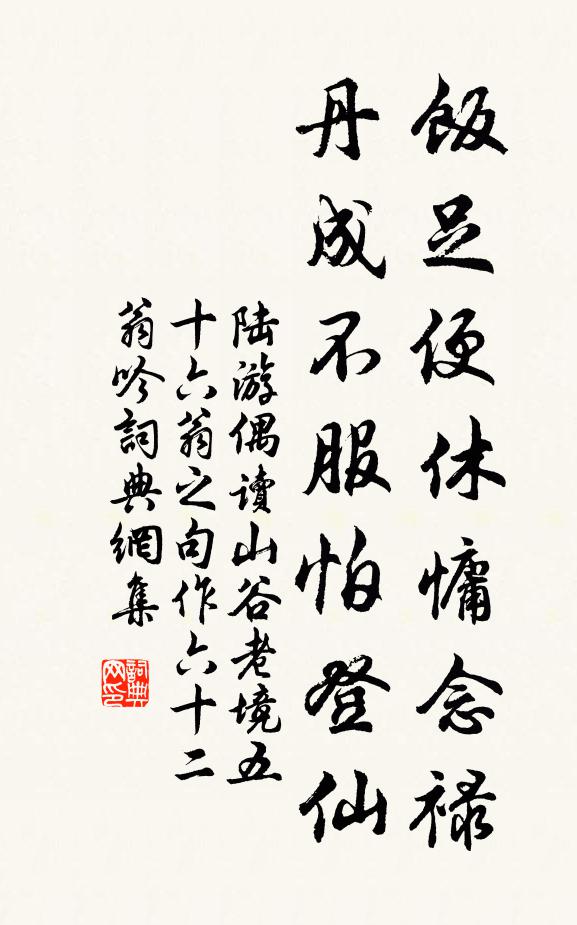 飯足便休慵念禄
丹成不服怕登仙
陆游偶讀山谷老境五
十六翁之句作六十二
翁吟詞典網集
詞典网印